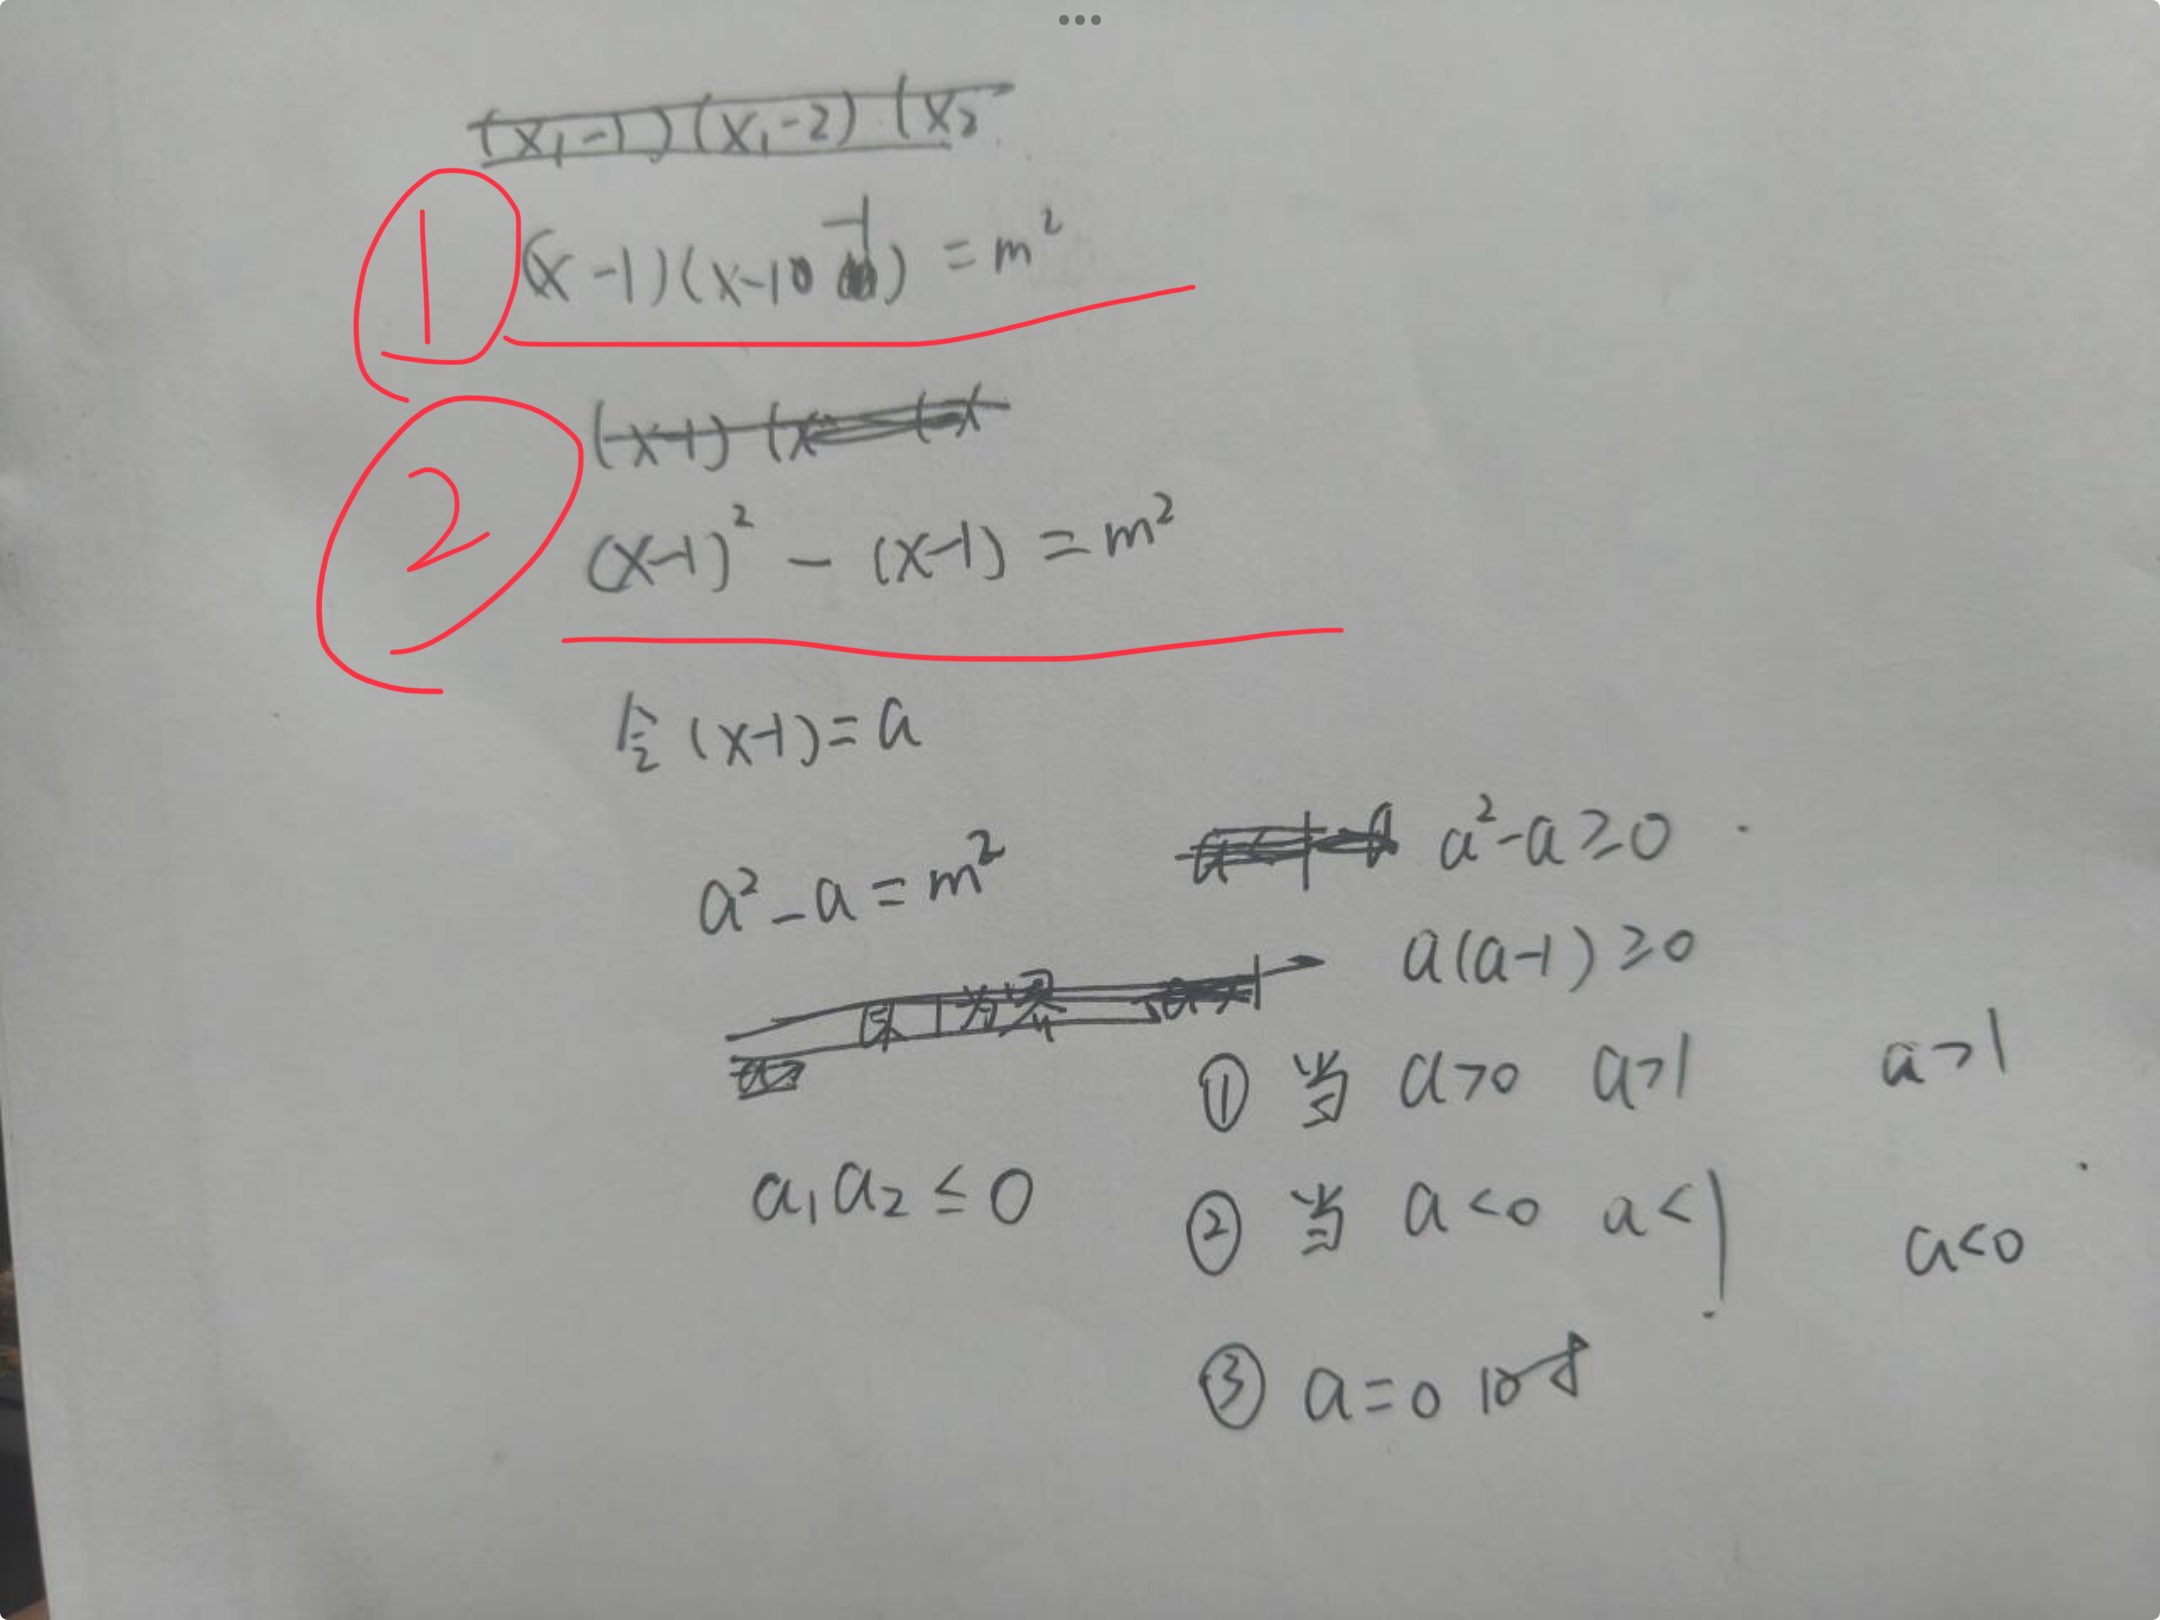 (x₁-1)(x₁-2)(x₂
1
(x-1)(x-1-1)=m²
2
(x-1)(x (x
(x-1)²-(x-1)=m²
令(x-1)=a
a²-a=m²
a²-a≥0
a(a-1)≥0
a₁a₂≤0
① 当 a>0 a>1 a>1
② 当 a<0 a<1 a<0
③ a=0